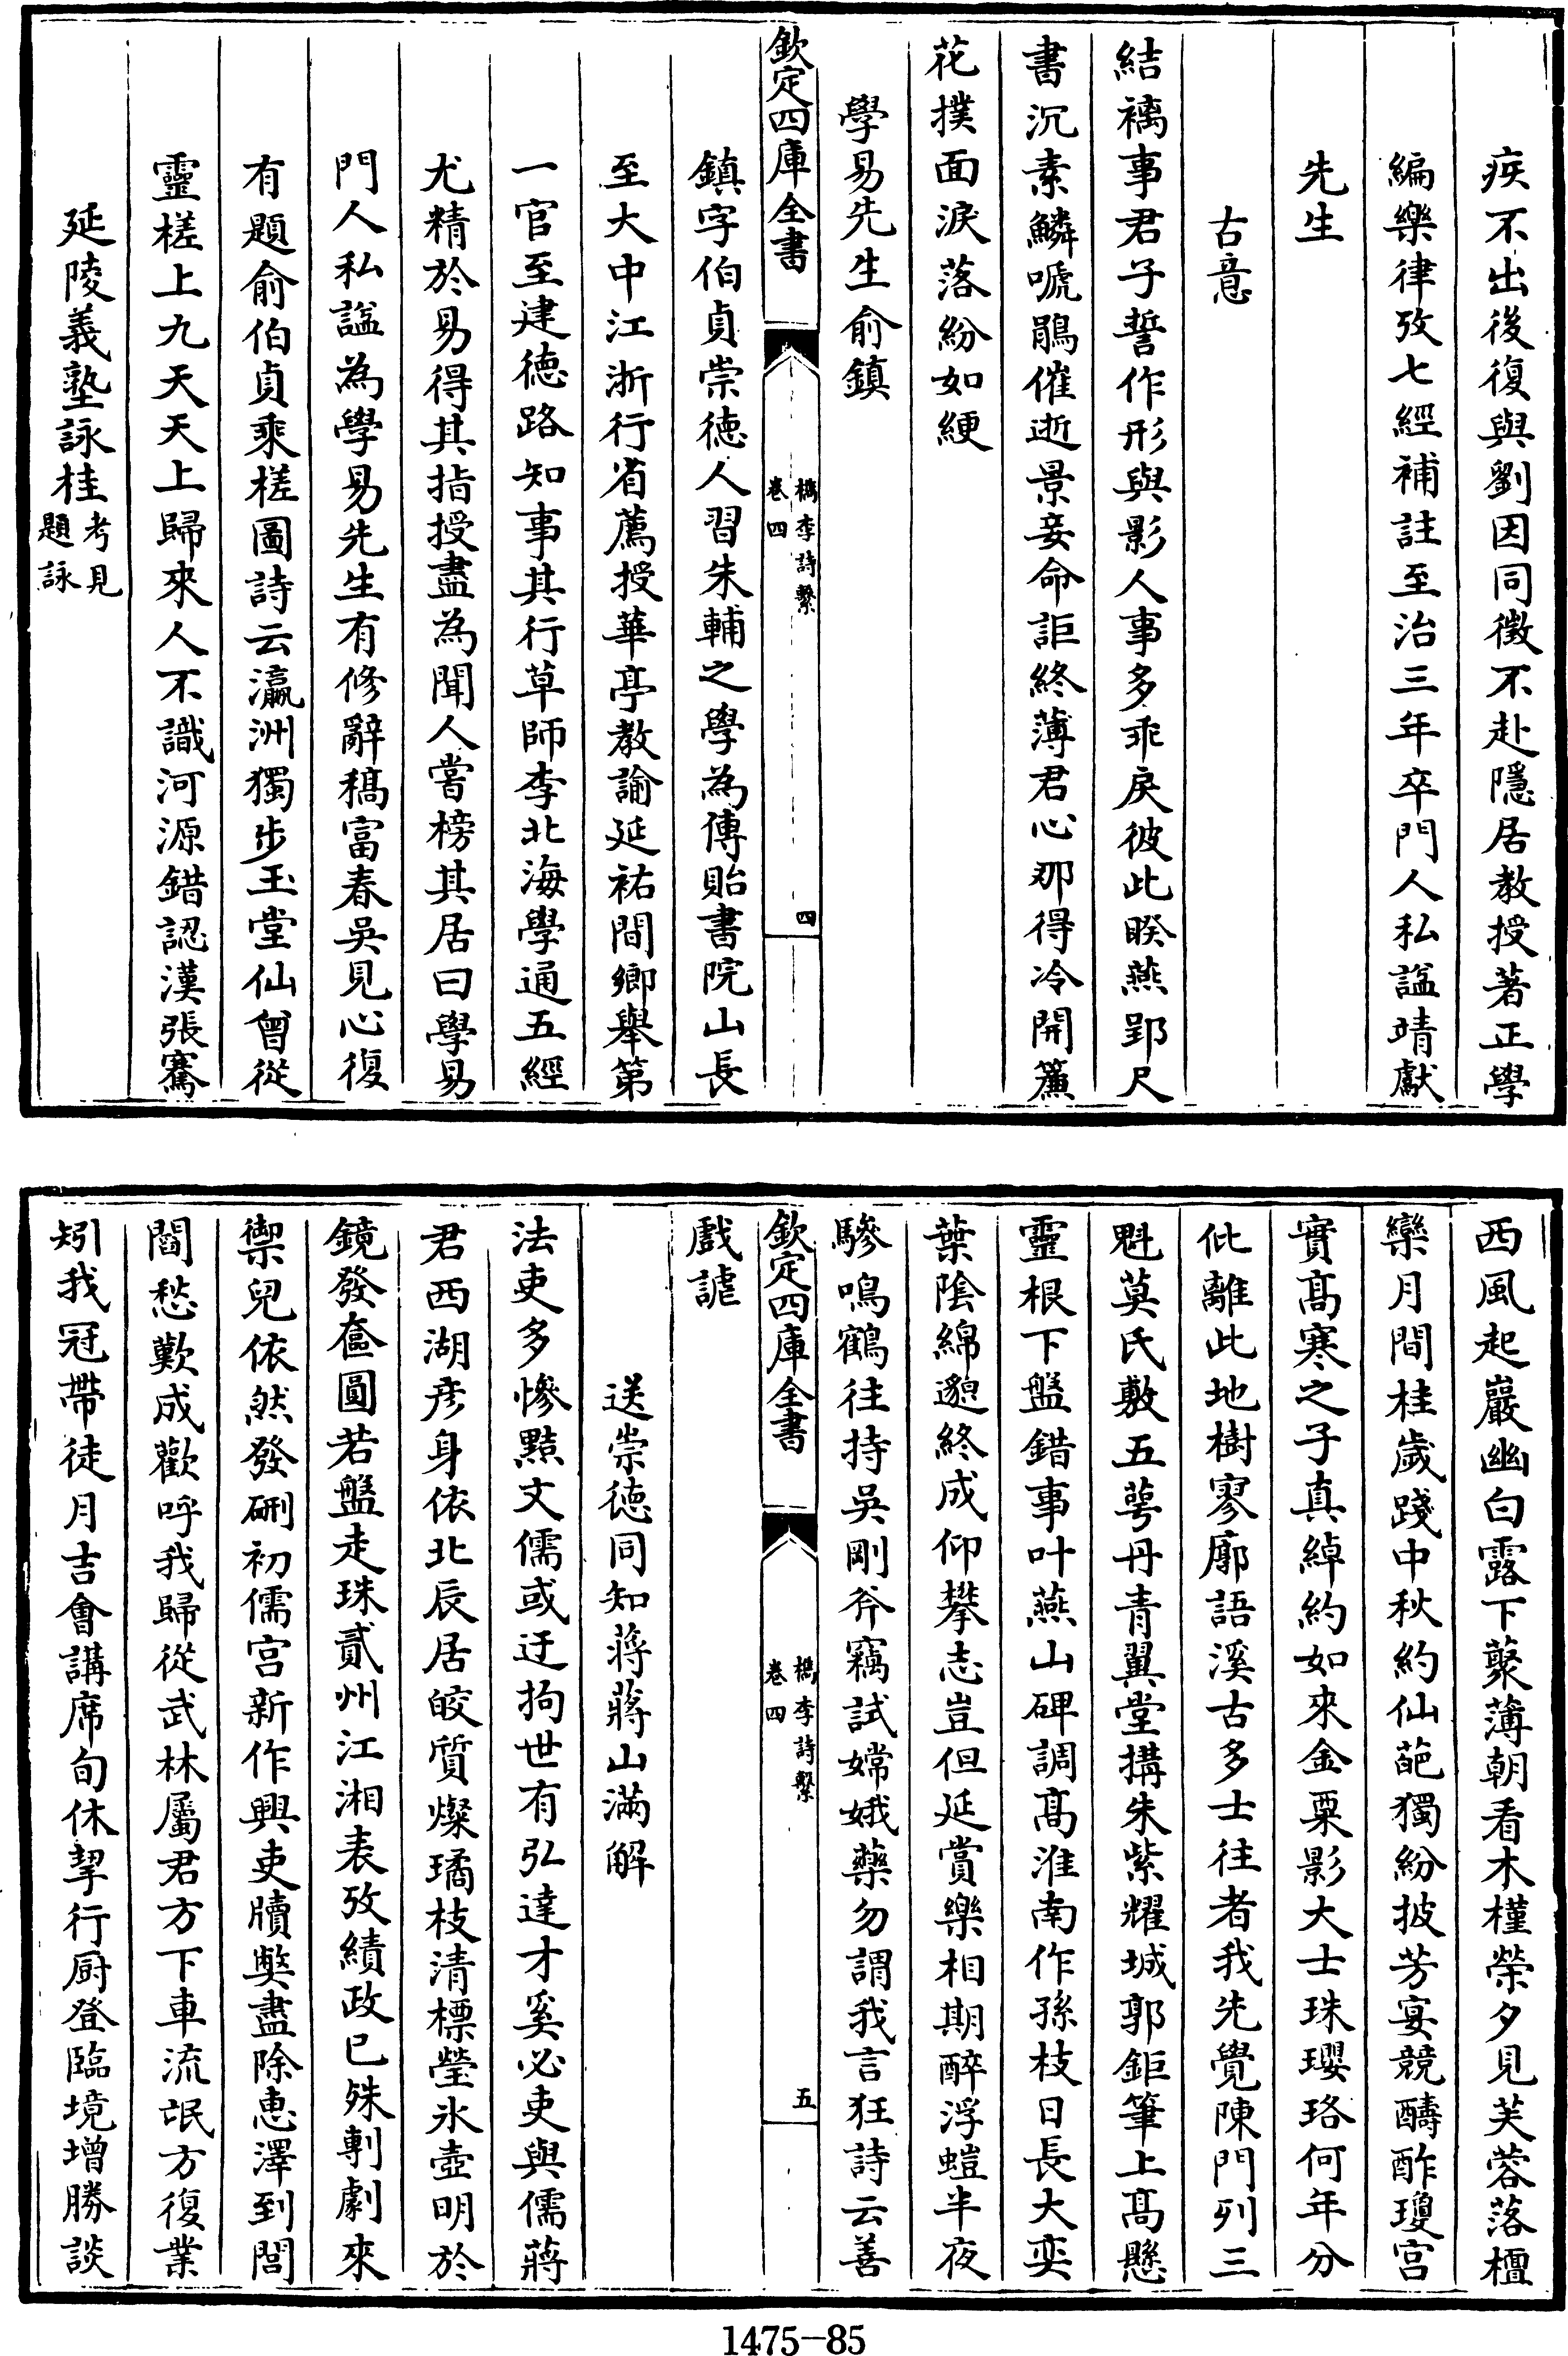 疾不出後復與劉因同徵不赴隱居教授著正學
編樂律攷七經補註至治三年卒門人私諡靖獻
先生
古意
結褵事君子誓作形與影人事多乖戾彼此睽燕郢尺
書沉素鱗嗁鵑催逝景妾命詎終薄君心那得冷開簾
花撲面淚落紛如綆
學易先生俞鎮
欽定四庫全書
檇李詩繫
卷四
四
鎮字伯貞崇徳人習朱輔之學為傅貽書院山長
至大中江浙行省薦授華亭教諭延祐間鄉舉第
一官至建徳路知事其行草師李北海學通五經
尤精於易得其指授盡為聞人嘗榜其居曰學易
門人私諡為學易先生有修辭稿富春吳見心復
有題俞伯貞乘槎圖詩云瀛洲獨步玉堂仙曾從
靈槎上九天天上歸來人不識河源錯認漢張騫
延陵義塾詠桂考見
題詠
西風起巖幽白露下藂薄朝看木槿榮夕見芙蓉落檀
欒月間桂歲踐中秋約仙葩獨紛披芳宴競醻酢瓊宫
實髙寒之子真綽約如來金粟影大士珠瓔珞何年分
仳離此地樹寥廓語溪古多士往者我先覺陳門列三
魁莫氏敷五萼丹青翼堂搆朱紫耀城郭鉅筆上髙懸
靈根下盤錯事叶燕山碑調髙淮南作孫枝日長大奕
葉陰綿邈終成仰攀志豈但延賞樂相期醉浮螘半夜
驂鳴鶴往持吳剛斧竊試嫦娥藥勿謂我言狂詩云善
欽定四庫全書
檇李詩繫
卷四
五
戲謔
送崇徳同知蔣蔣山滿解
法吏多慘黠文儒或迂拘世有弘達才奚必吏與儒蔣
君西湖彦身依北辰居皎質燦璚枝清標瑩氷壺明於
鏡發奩圓若盤走珠貳州江湘表攷績政已殊剸劇來
禦兒依然發硎初儒宫新作興吏牘獘盡除恵澤到閭
閻愁歎成歡呼我歸從武林屬君方下車流氓方復業
矧我冠帶徒月吉會講席旬休挈行厨登臨境增勝談
1475—85